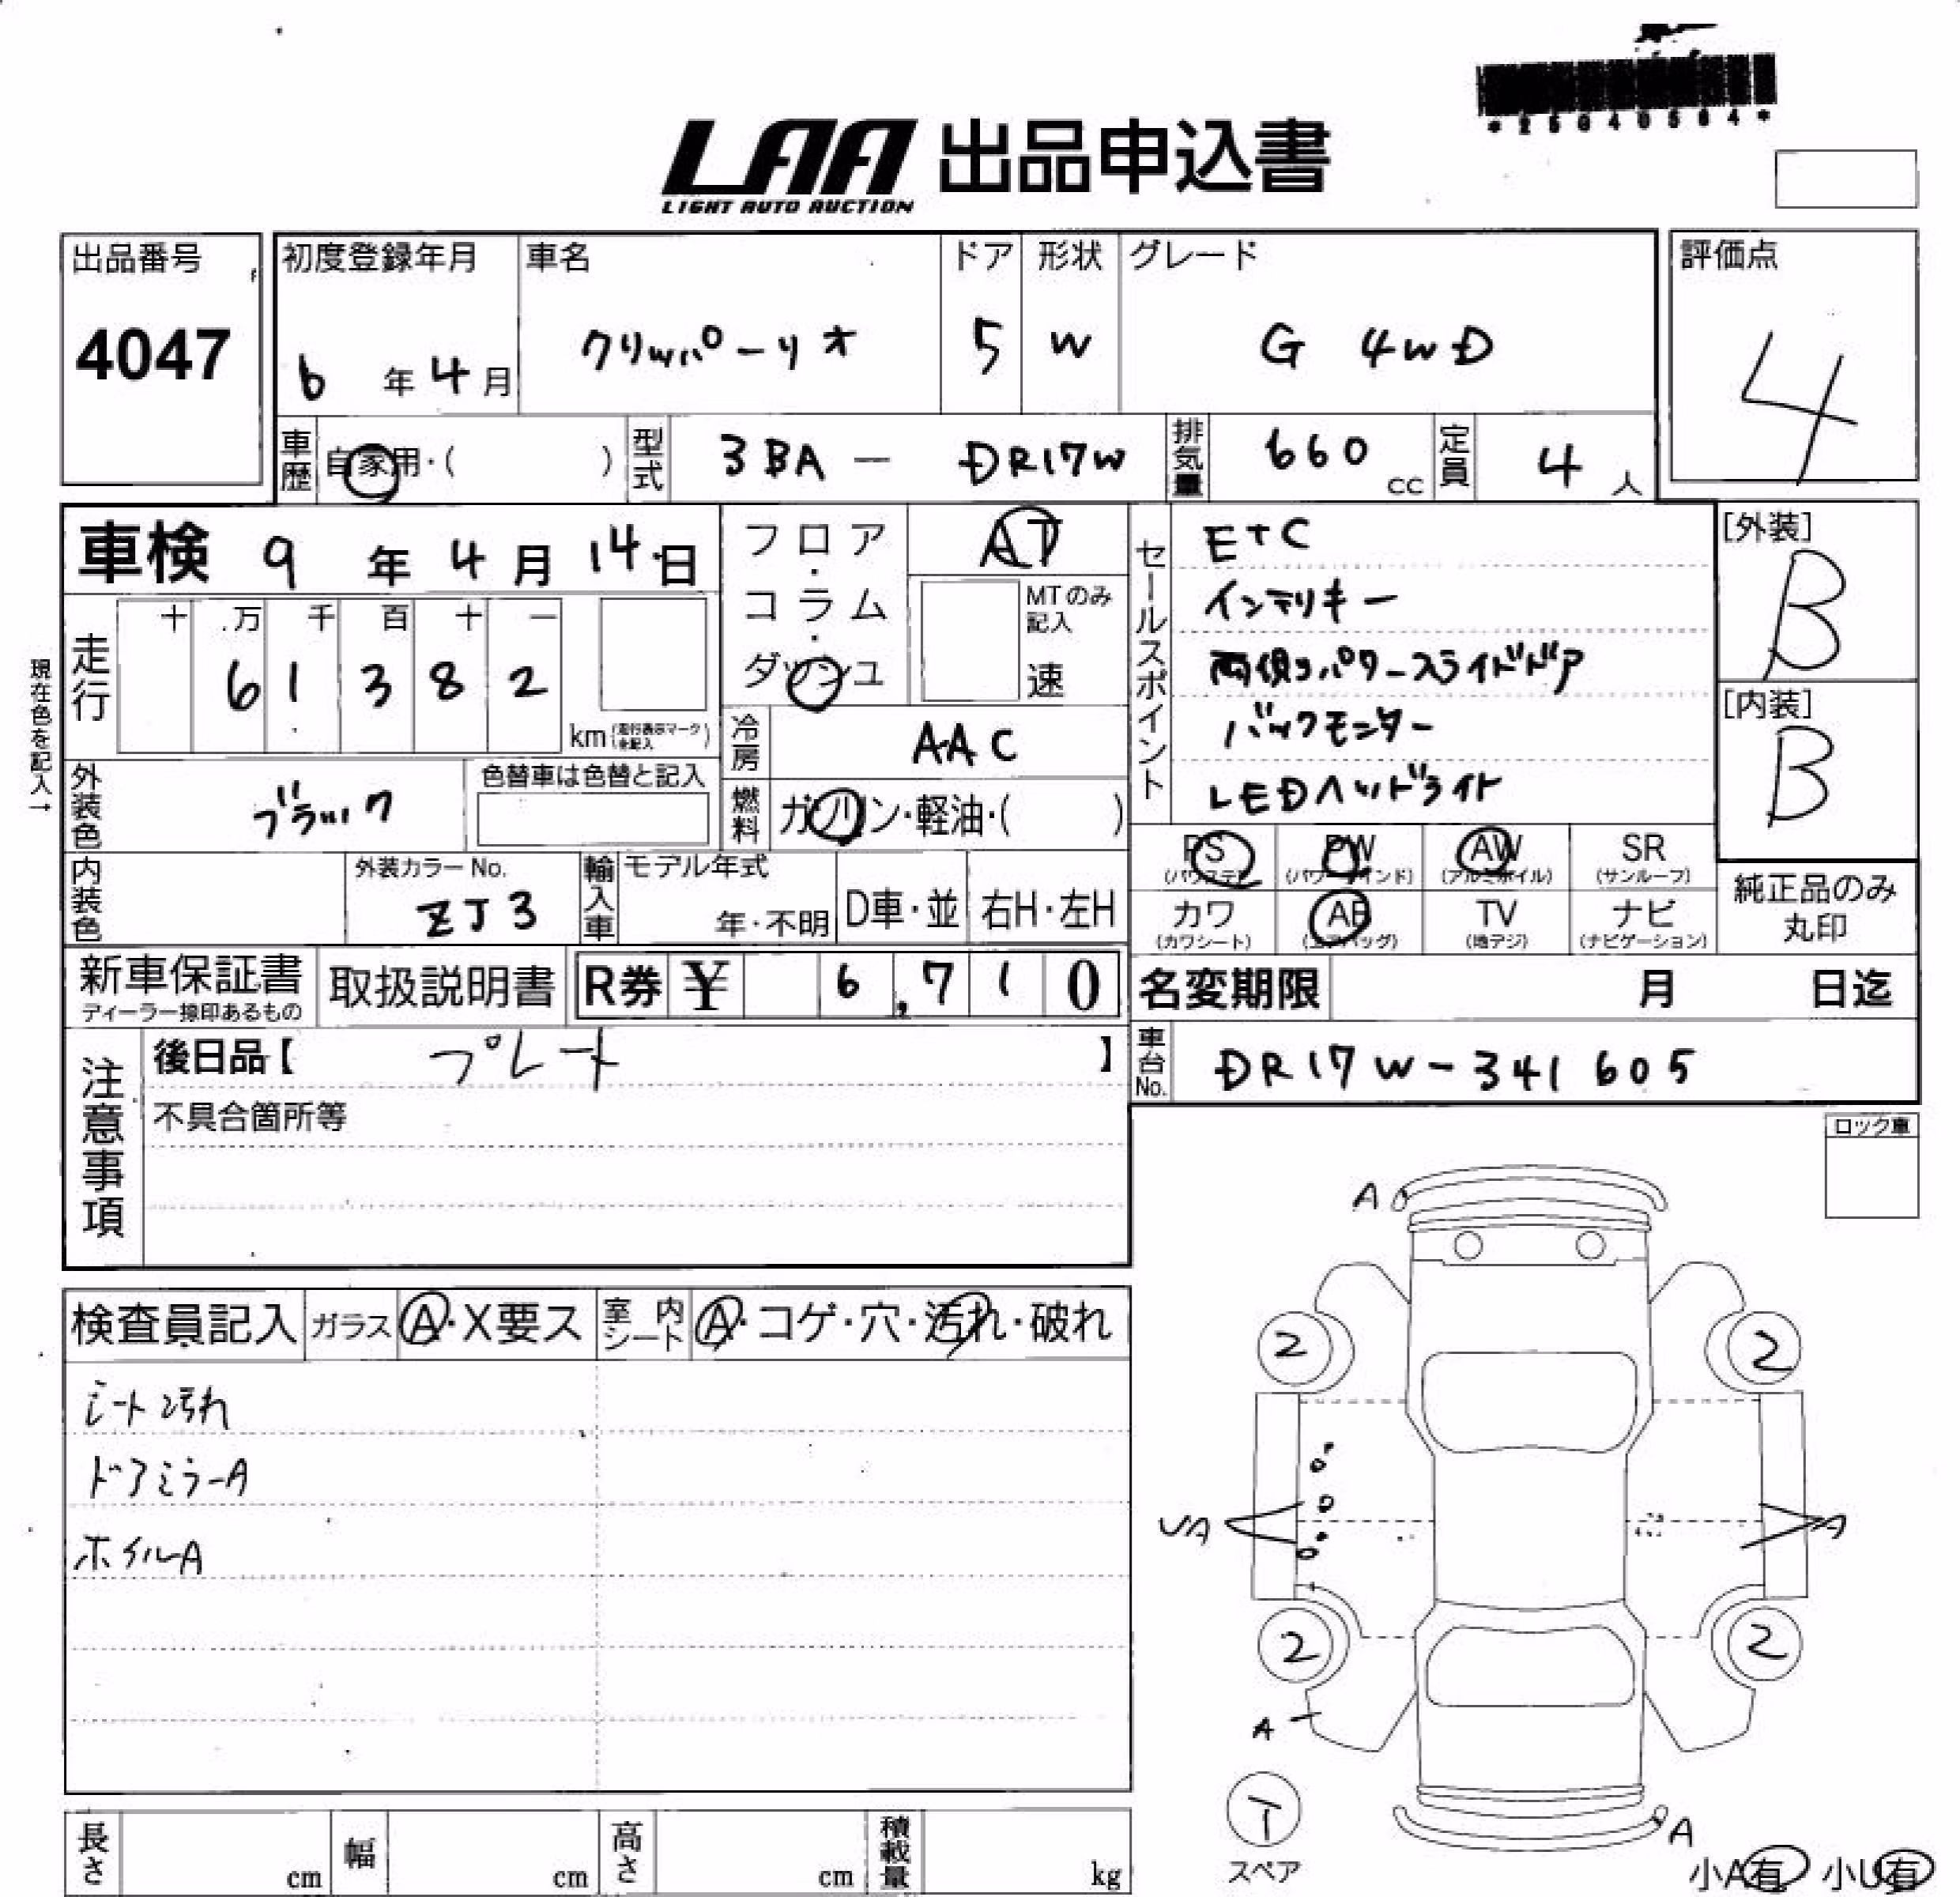 *25040504*
LAA 出品申込書
LIGHT AUTO AUCTION
出品番号 4047
初度登録年月 6年4月
車名 クリッパーリオ
ドア 5
形状 W
グレード G 4WD
評価点 4
車歴 自家用・( )
型式 3BA - DR17W
排気量 660 cc
定員 4人
車検 9年4月14日
走行 十 万 千 百 十 一
6 1 3 8 2
km (走行表示マークを記入)
現在色を記入→
フロア・コラム・ダッシュ
AT
MTのみ記入
速
冷房 AAC
燃料 ガソリン・軽油・( )
外装色 ブラック
色替車は色替と記入
内装色
外装カラーNo. ZJ3
輸入車
モデル年式 年・不明
D車・並
右H・左H
セールスポイント
ETC
インテリキー
両側パワースライドドア
バックモニター
LEDヘッドライト
[外装] B
[内装] B
PS (パワステ) PW (パワーウインド) AW (アルミホイル) SR (サンルーフ)
カワ (カワシート) AB (エアバッグ) TV (地デジ) ナビ (ナビゲーション)
純正品のみ丸印
新車保証書
ディーラー捺印あるもの
取扱説明書
R券 ¥ 6,710
名変期限 月 日迄
車台No. DR17W-341605
注意事項
後日品【 プレート 】
不具合箇所等
ロック車
検査員記入
ガラス A・X要ス
室内シート A・コゲ・穴・汚れ・破れ
シート汚れ
ドアミラーA
ホイルA
A
2 2
UA A
2 2
A
T
スペア
A
小A有 小U有
長さ cm
幅 cm
高さ cm
積載量 kg